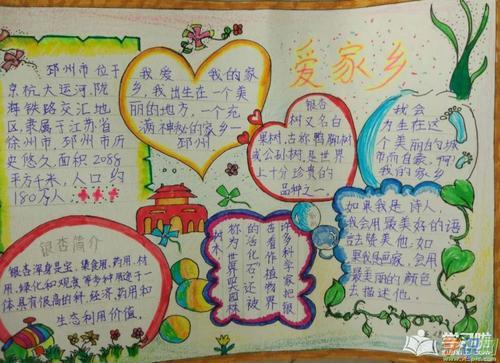 爱家乡
邳州市位于
京杭大运河,陇
海铁路交汇地
区,隶属于江苏省
徐州市,邳州市历
史悠久面积2088
平方千米,人口约
180万人,
我爱我的家
乡,我出生在一个美
丽的地方,一个充
满神秘的家乡一
邳州
银杏
树又名白
果树,古称鸭脚树
或公孙树,是世界
上十分珍贵的
品种之一。
我会
为生在这
个美丽的城
市而自豪,啊!
我的家乡
银杏简介
银杏浑身是宝,集食用,药用,材
用,绿化和观赏等多种用途于一
体,具有很高的科,经济,药用和
生态利用价值。
许多科学家把银
杏看作植物界
的活化石,还被
称为世界四园林
树木
如果我是诗人,
我会用最美好的语
言去赞美他.如
果我是画家,会用
最美丽的颜色
去描述他。
学习啦